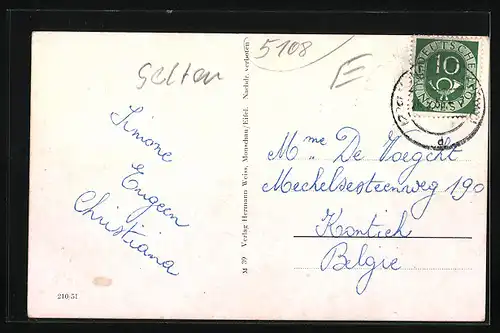 5108
Selten
E
Simone
Eugeen
Christiana
M 39 Verlag Hermann Weiss, Monschau/Eifel. Nachdr. verboten
DEUTSCHE POST
10
Mme De
Mechelsesteenweg 190
Kontich
Belgie
210/51